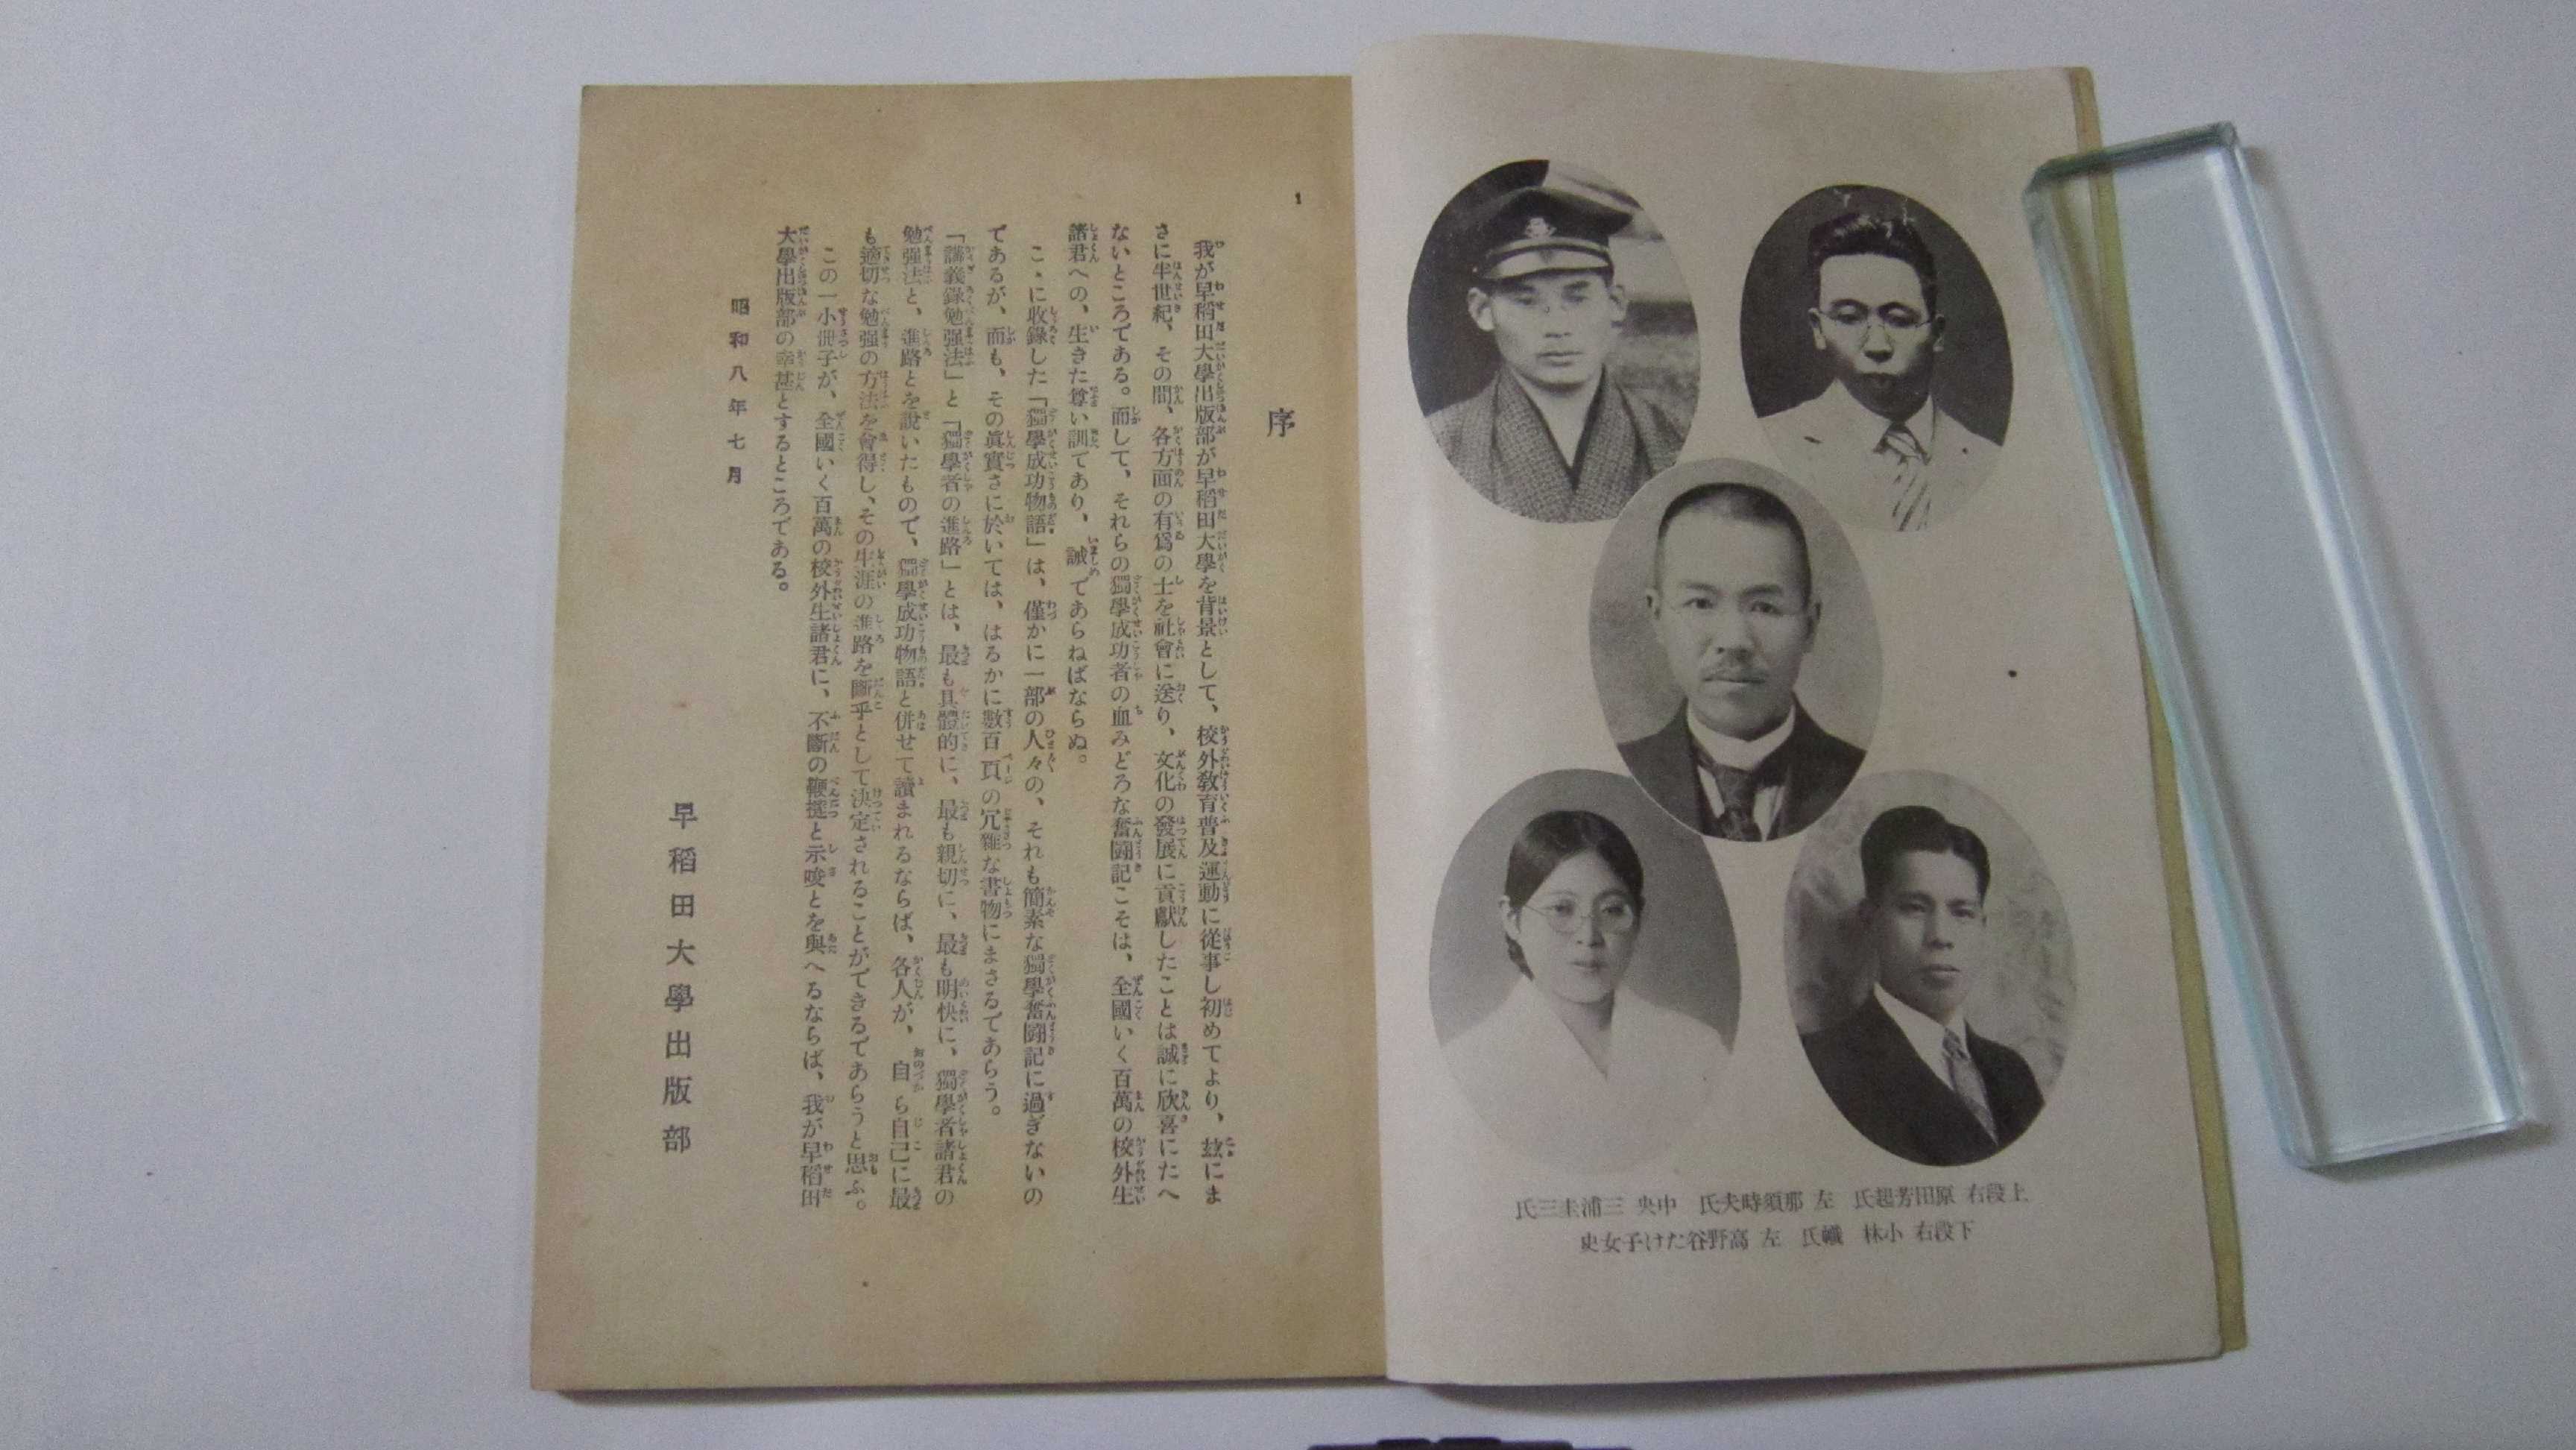 氏三圭浦三 央中 氏夫時須那 左 氏超芳田原 右段上
史女子けた谷野高 左 氏幟 林小 右段下
1
序
我が早稲田大學出版部が早稲田大學を背景として、校外敎育普及運動に從事し初めてより、玆にま
さに半世紀、その間、各方面の有爲の士を社會に送り、文化の發展に貢獻したことは誠に欣喜にたへ
ないところである。而して、それらの獨學成功者の血みどろな奮鬪記こそは、全國いく百萬の校外生
諸君への、生きた尊い訓であり、誡であらねばならぬ。
こゝに收錄した「獨學成功物語」は、僅かに一部の人々の、それも簡素な獨學奮鬪記に過ぎないの
であるが、而も、その眞實さに於いては、はるかに數百頁の冗雜な書物にまさるであらう。
「講義錄勉强法」と「獨學者の進路」とは、最も具體的に、最も親切に、最も明快に、獨學者諸君の
勉强法と、進路とを說いたもので、獨學成功物語と併せて讀まれるならば、各人が、自ら自己に最
も適切な勉强の方法を會得し、その生涯の進路を斷乎として決定されることができるであらうと思ふ。
この一小册子が、全國いく百萬の校外生諸君に、不斷の鞭撻と示唆とを與へるならば、我が早稲田
大學出版部の幸甚とするところである。
昭和八年七月
早稲田大學出版部